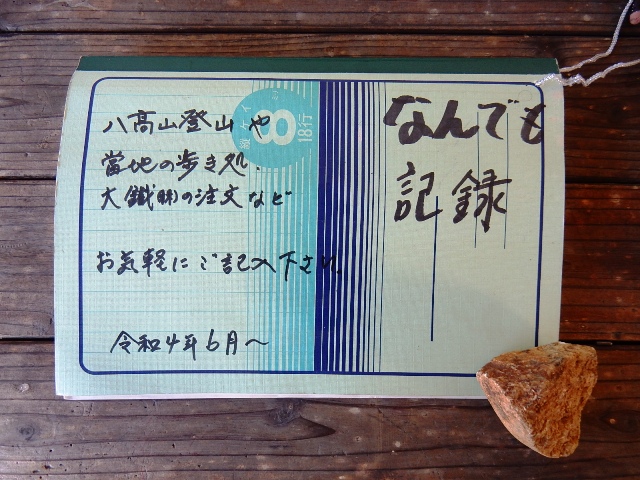 なんでも
記録
八高山登山や
當地の歩き処.
大鐵㈱の注文など
お気軽にご記入下さい。
令和4年6月～
8
18行